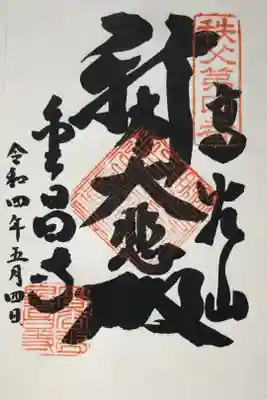 秩父第四番
高谷山
大悲殿
金昌寺
令和四年五月四日